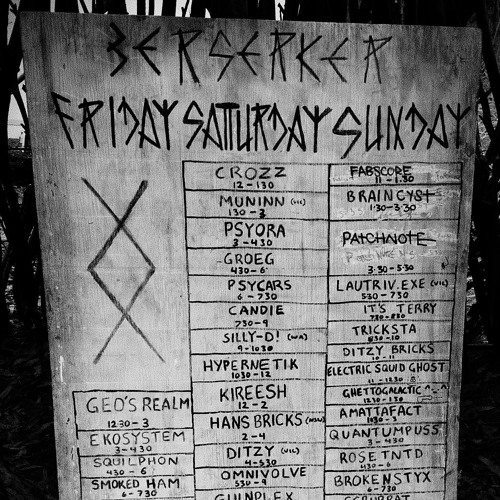 BERSERKER
FRIDAY SATTURDAY SUNDAY
GEO'S REALM
1230-3
EKOSYSTEM
3-430
SQUILPHON
430-6
SMOKED HAM
6-730
CROZZ
12-130
MUNINN (VIC)
130-3
PSYORA
3-430
GROEG
430-6
PSYCARS
6-730
CANDIE
730-9
SILLY-D! (WA)
9-1030
HYPERNETIK
1030-12
KIREESH
12-2
HANS BRICKS (NSW)
2-4
DITZY (VIC)
4-530
OMNIVOLVE
530-9
FABSCORE
11-1.30
BRAINCYST
1.30-3.30
PATCHNOTE
3:30-5:30
LAUTRIV.EXE (VIC)
530-730
IT'S TERRY
TRICKSTA
DITZY BRICKS
10-11
ELECTRIC SQUID GHOST
11-1230
GHETTOGALACTIC ^_^
1230-130
AMATTAFACT
QUANTUMPUSS
3-430
ROSE TNTD
430-6
BROKENSTYX
6-730